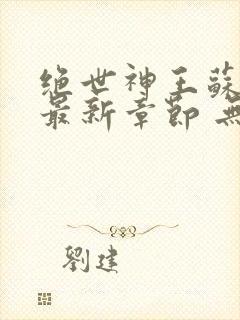 绝世神王蘇
最新章節 無
劉建